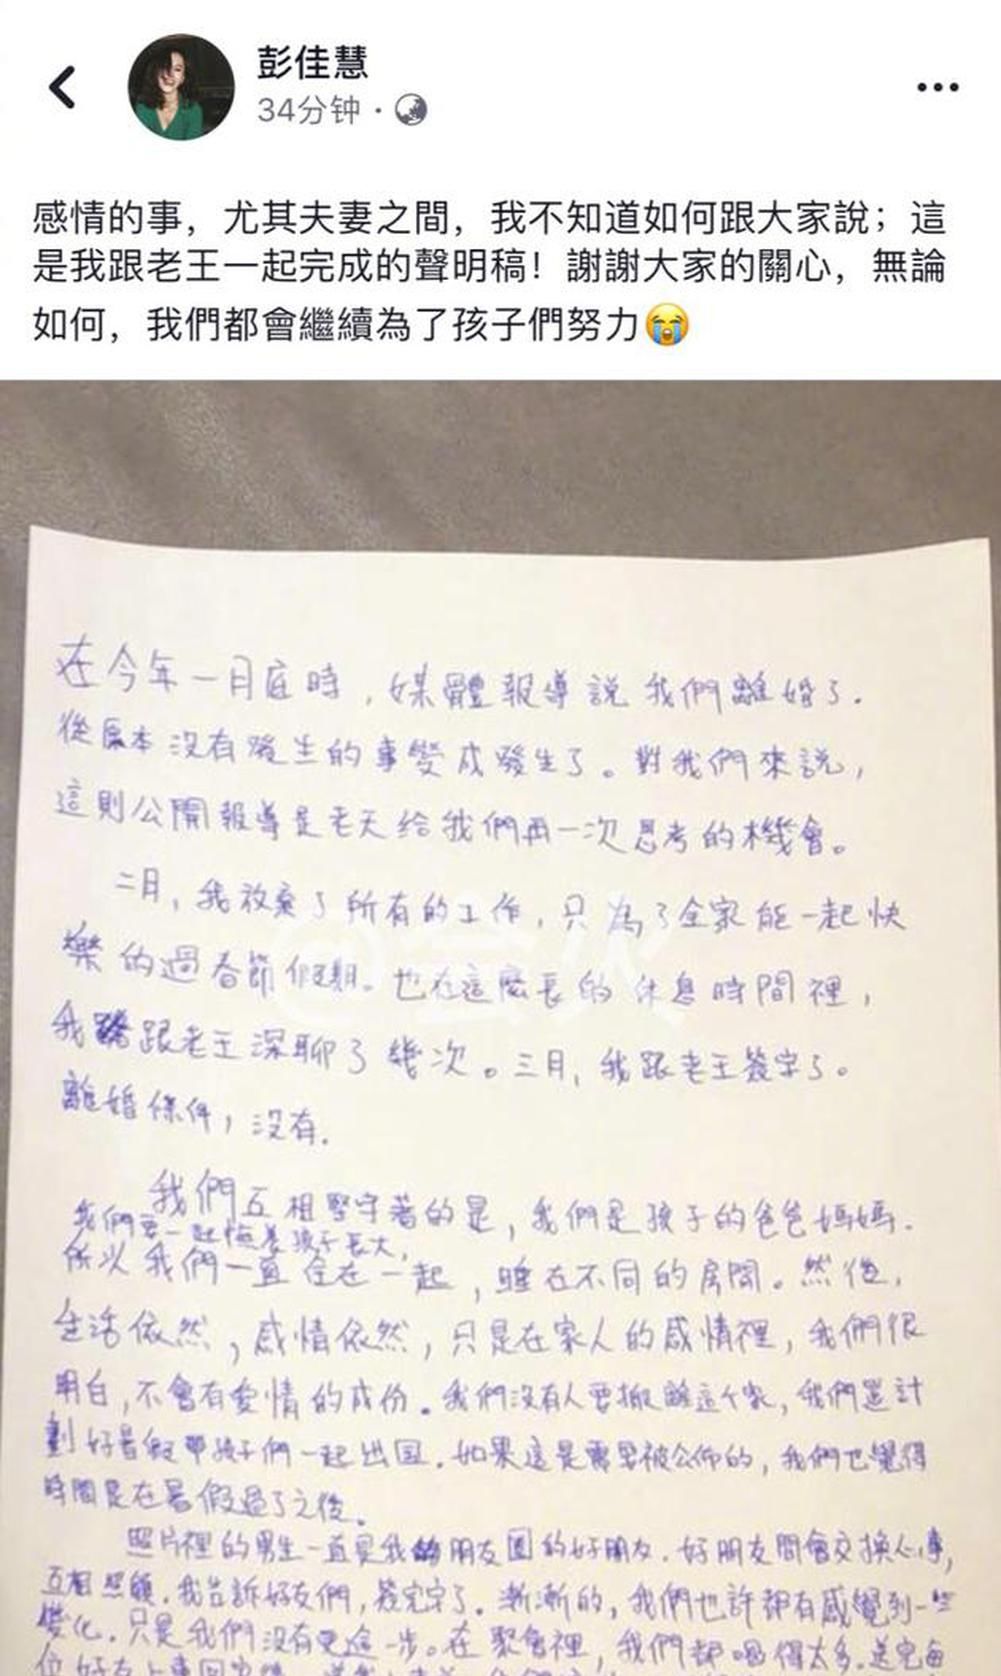 彭佳慧
34分钟 ·
感情的事，尤其夫妻之間，我不知道如何跟大家說；這
是我跟老王一起完成的聲明稿！謝謝大家的關心，無論
如何，我們都會繼續為了孩子們努力😭
在今年一月底時，媒體報導說我們離婚了.
從原本沒有發生的事變成發生了。對我們來說，
這則公開報導是老天給我們再一次思考的機會。
二月，我放棄了所有的工作，只為了全家能一起快
樂的過春節假期。也在這麼長的休息時間裡，
我跟老王深聊了幾次。三月，我跟老王簽字了。
離婚條件，沒有.
我們互相堅守著的是，我們是孩子的爸爸媽媽.
我們要一起陪著孩子長大，
所以我們一直住在一起，睡在不同的房間。然後，
生活依然，感情依然，只是在家人的感情裡，我們很
明白，不會有愛情的成份。我們沒有人要搬離這个家，我們還計
劃好暑假帶孩子們一起出国.如果這是需要被公佈的，我們也覺得
時間是在暑假過了之後。
照片裡的男生一直是我朋友圈的好朋友.好朋友間會交換心事，
互相照顧.我告訴好友們，簽完字了.漸漸的，我們也許都有感覺到一些
變化.只是我們沒有更進一步。在聚會裡，我們都喝得太多.送完每
位好友上車回家後